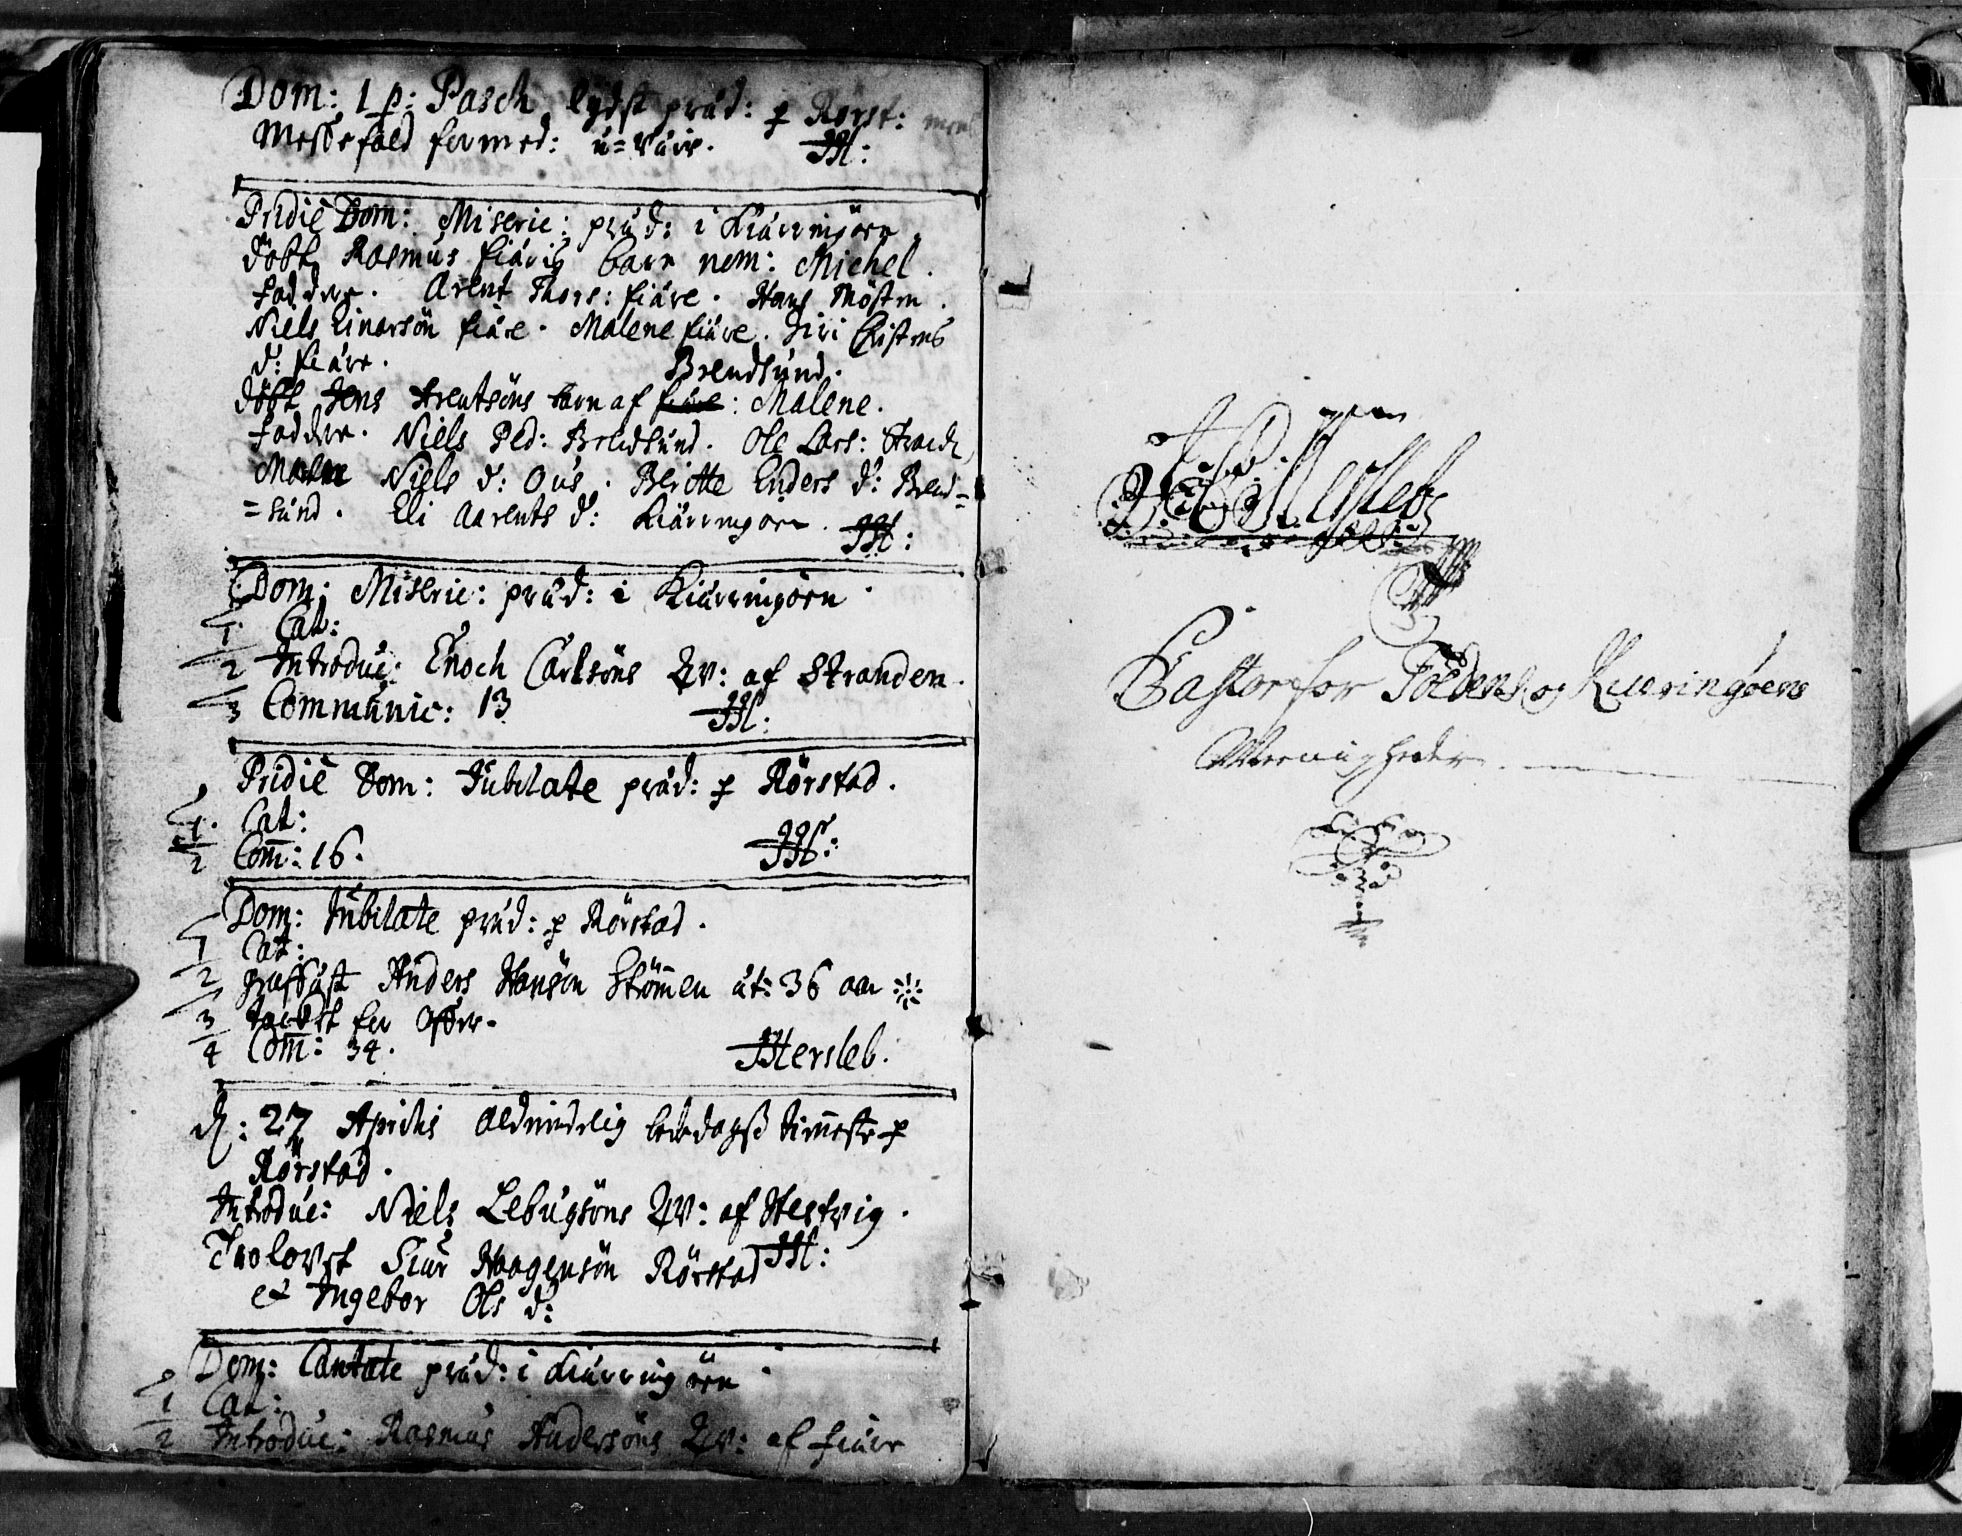 Dom: 1 p: Pasch lyst præd: p Rørst:
Messefald formed: u=vair. JH:
Pridie Dom: Miseric: præd: i Kiærringöen
döbt Rasmus fiæris barn nom: Michel.
faddre. Arent Thors: fiære. Hans
Niels Einersön fiære. Malene fiære. Siri Christens
d: fiære. Brendsund.
döbt Jens Arentsöns barn af fiære: Malene.
faddre. Niels Ped: Brendsund. Ole Lars:
Maren Niels d: Ous. Beritte Enders d: Brend=
=sund. Eli Aarents d: Kiærringöen. JH:
Dom: Miseric: præd: i Kiærringöen
1 Cat:
2 Introduc: Enoch Carlsöns Qv: af Stranden.
3 Communic: 13 JH:
Pridie Dom: Jubilate præd: p Rörstad.
1. Cat:
2 Com̄: 16. JH:
Dom: Jubilate præd: p Rörstad.
1 Cat:
2 Anders Hansön Strömen æt: 36 aar
3 for Offer.
4 Com̄: 34. JHersleb.
d: 27 Aprilis Aldmindelig bededagß p
Rörstad.
Introduc: Niels Lebugsöns Qv: af Hestvig.
Trolovet Siur Haagensön Rörstad JH:
et Ingebor Ols d:
Dom: Cantate præd: i Kiærringöen
1 Cat:
2 Introduc: Rasmus Andersöns Qv: af fiære
Hersleb
Pastor for Foldens og Kierringöens
Meenigheder